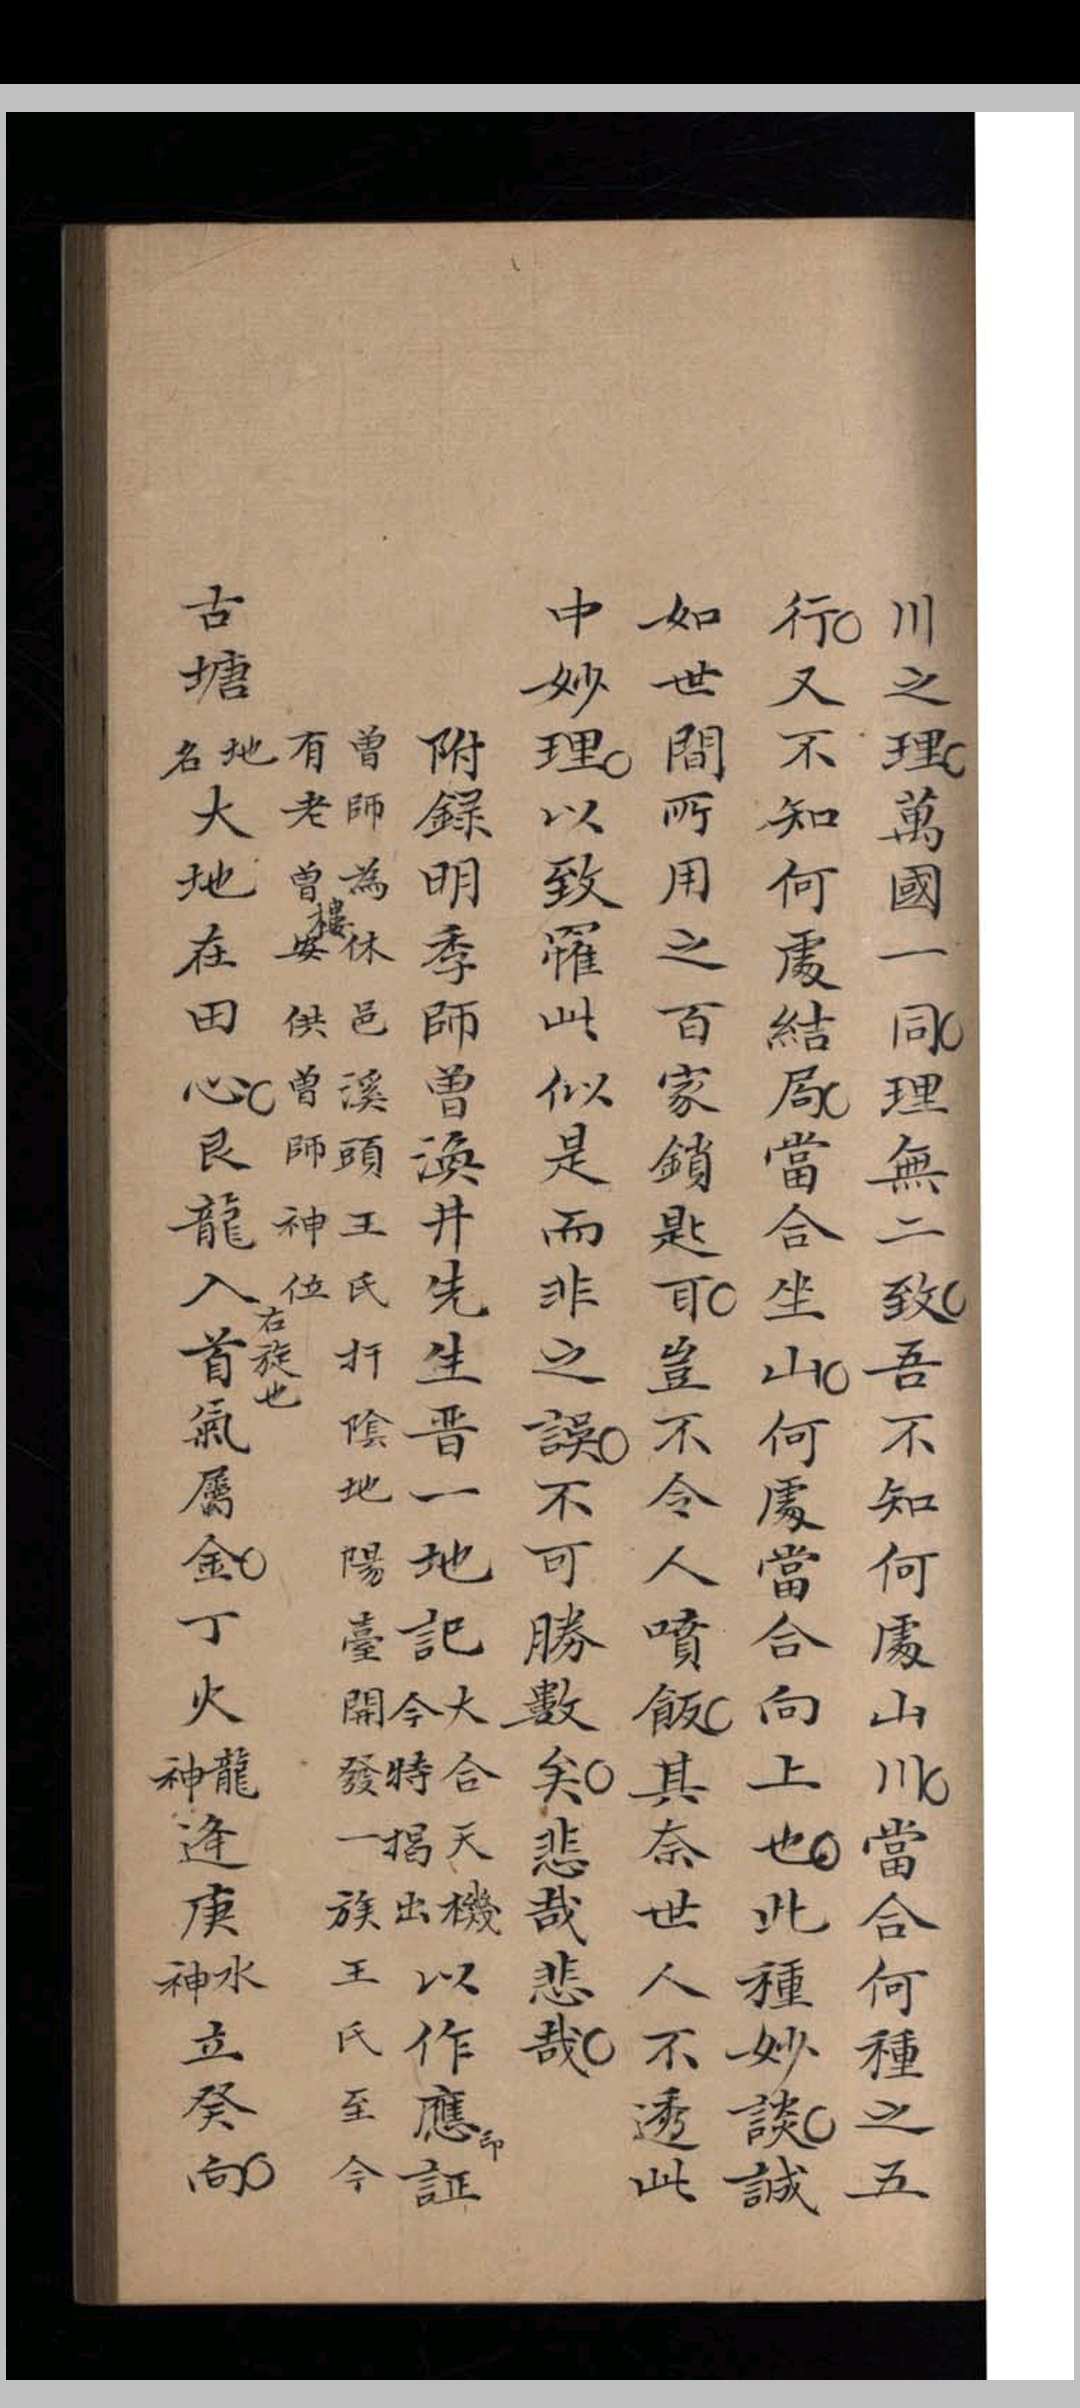 川之理萬國一同理無二致吾不知何處山川當合何種之五
行又不知何處結局當合坐山何處當合向上也此種妙談誠
如世間所用之百家鎖匙耳豈不令人噴飯其奈世人不透此
中妙理以致罹此似是而非之誤不可勝數矣悲哉悲哉
附錄明季師曾渙井先生晋一地記
大合天機
今特揭出
以作應証
印
曾師為休邑溪頭王氏扞陰地陽臺開發一族王氏至今
有老曾安供曾師神位
樓
古塘
地
名
大地在田心艮龍入首氣屬金丁火
右旋也
龍
神
逢庚
水
神
立癸向